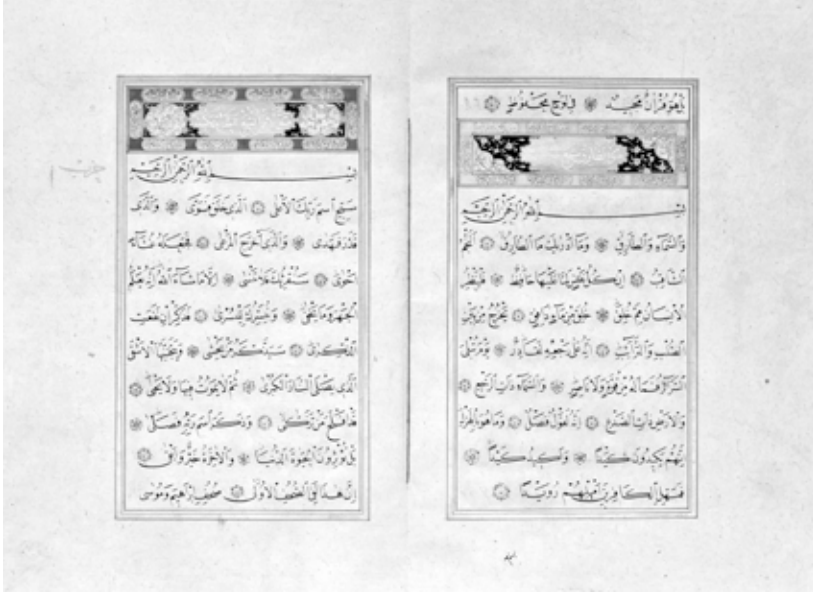 بَلْ هُوَ قُرْآنٌ مَجِيدٌ فِي لَوْحٍ مَحْفُوظٍ
بِسْمِ اللَّهِ الرَّحْمَنِ الرَّحِيمِ
وَالسَّمَاءِ وَالطَّارِقِ وَمَا أَدْرَيكَ مَا الطَّارِقُ النَّجْمُ
الثَّاقِبُ إِنْ كُلُّ نَفْسٍ لَمَّا عَلَيْهَا حَافِظٌ فَلْيَنْظُرِ
الْإِنْسَانُ مِمَّ خُلِقَ خُلِقَ مِنْ مَاءٍ دَافِقٍ يَخْرُجُ مِنْ بَيْنِ
الصُّلْبِ وَالتَّرَائِبِ إِنَّهُ عَلَى رَجْعِهِ لَقَادِرٌ يَوْمَ تُبْلَى
السَّرَائِرُ فَمَا لَهُ مِنْ قُوَّةٍ وَلَا نَاصِرٍ وَالسَّمَاءِ ذَاتِ الرَّجْعِ
وَالْأَرْضِ ذَاتِ الصَّدْعِ إِنَّهُ لَقَوْلٌ فَصْلٌ وَمَا هُوَ بِالْهَزْلِ
إِنَّهُمْ يَكِيدُونَ كَيْدًا وَأَكِيدُ كَيْدًا
فَمَهِّلِ الْكَافِرِينَ أَمْهِلْهُمْ رُوَيْدًا
حزب
بِسْمِ اللَّهِ الرَّحْمَنِ الرَّحِيمِ
سَبِّحِ اسْمَ رَبِّكَ الْأَعْلَى الَّذِي خَلَقَ فَسَوَّى وَالَّذِي
قَدَّرَ فَهَدَى وَالَّذِي أَخْرَجَ الْمَرْعَى فَجَعَلَهُ غُثَاءً
أَحْوَى سَنُقْرِئُكَ فَلَا تَنْسَى إِلَّا مَا شَاءَ اللَّهُ إِنَّهُ يَعْلَمُ
الْجَهْرَ وَمَا يَخْفَى وَنُيَسِّرُكَ لِلْيُسْرَى فَذَكِّرْ إِنْ نَفَعَتِ
الذِّكْرَى سَيَذَّكَّرُ مَنْ يَخْشَى وَيَتَجَنَّبُهَا الْأَشْقَى
الَّذِي يَصْلَى النَّارَ الْكُبْرَى ثُمَّ لَا يَمُوتُ فِيهَا وَلَا يَحْيَى
قَدْ أَفْلَحَ مَنْ تَزَكَّى وَذَكَرَ اسْمَ رَبِّهِ فَصَلَّى
بَلْ تُؤْثِرُونَ الْحَيَوةَ الدُّنْيَا وَالْآخِرَةُ خَيْرٌ وَأَبْقَى
إِنَّ هَذَا لَفِي الصُّحُفِ الْأُولَى صُحُفِ إِبْرَاهِيمَ وَمُوسَى